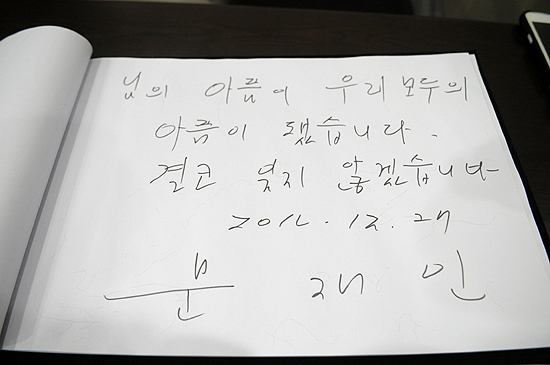 님의 아픔이 우리 모두의
아픔이 됐습니다.
결코 잊지 않겠습니다
2012. 12. 27
문 재 인